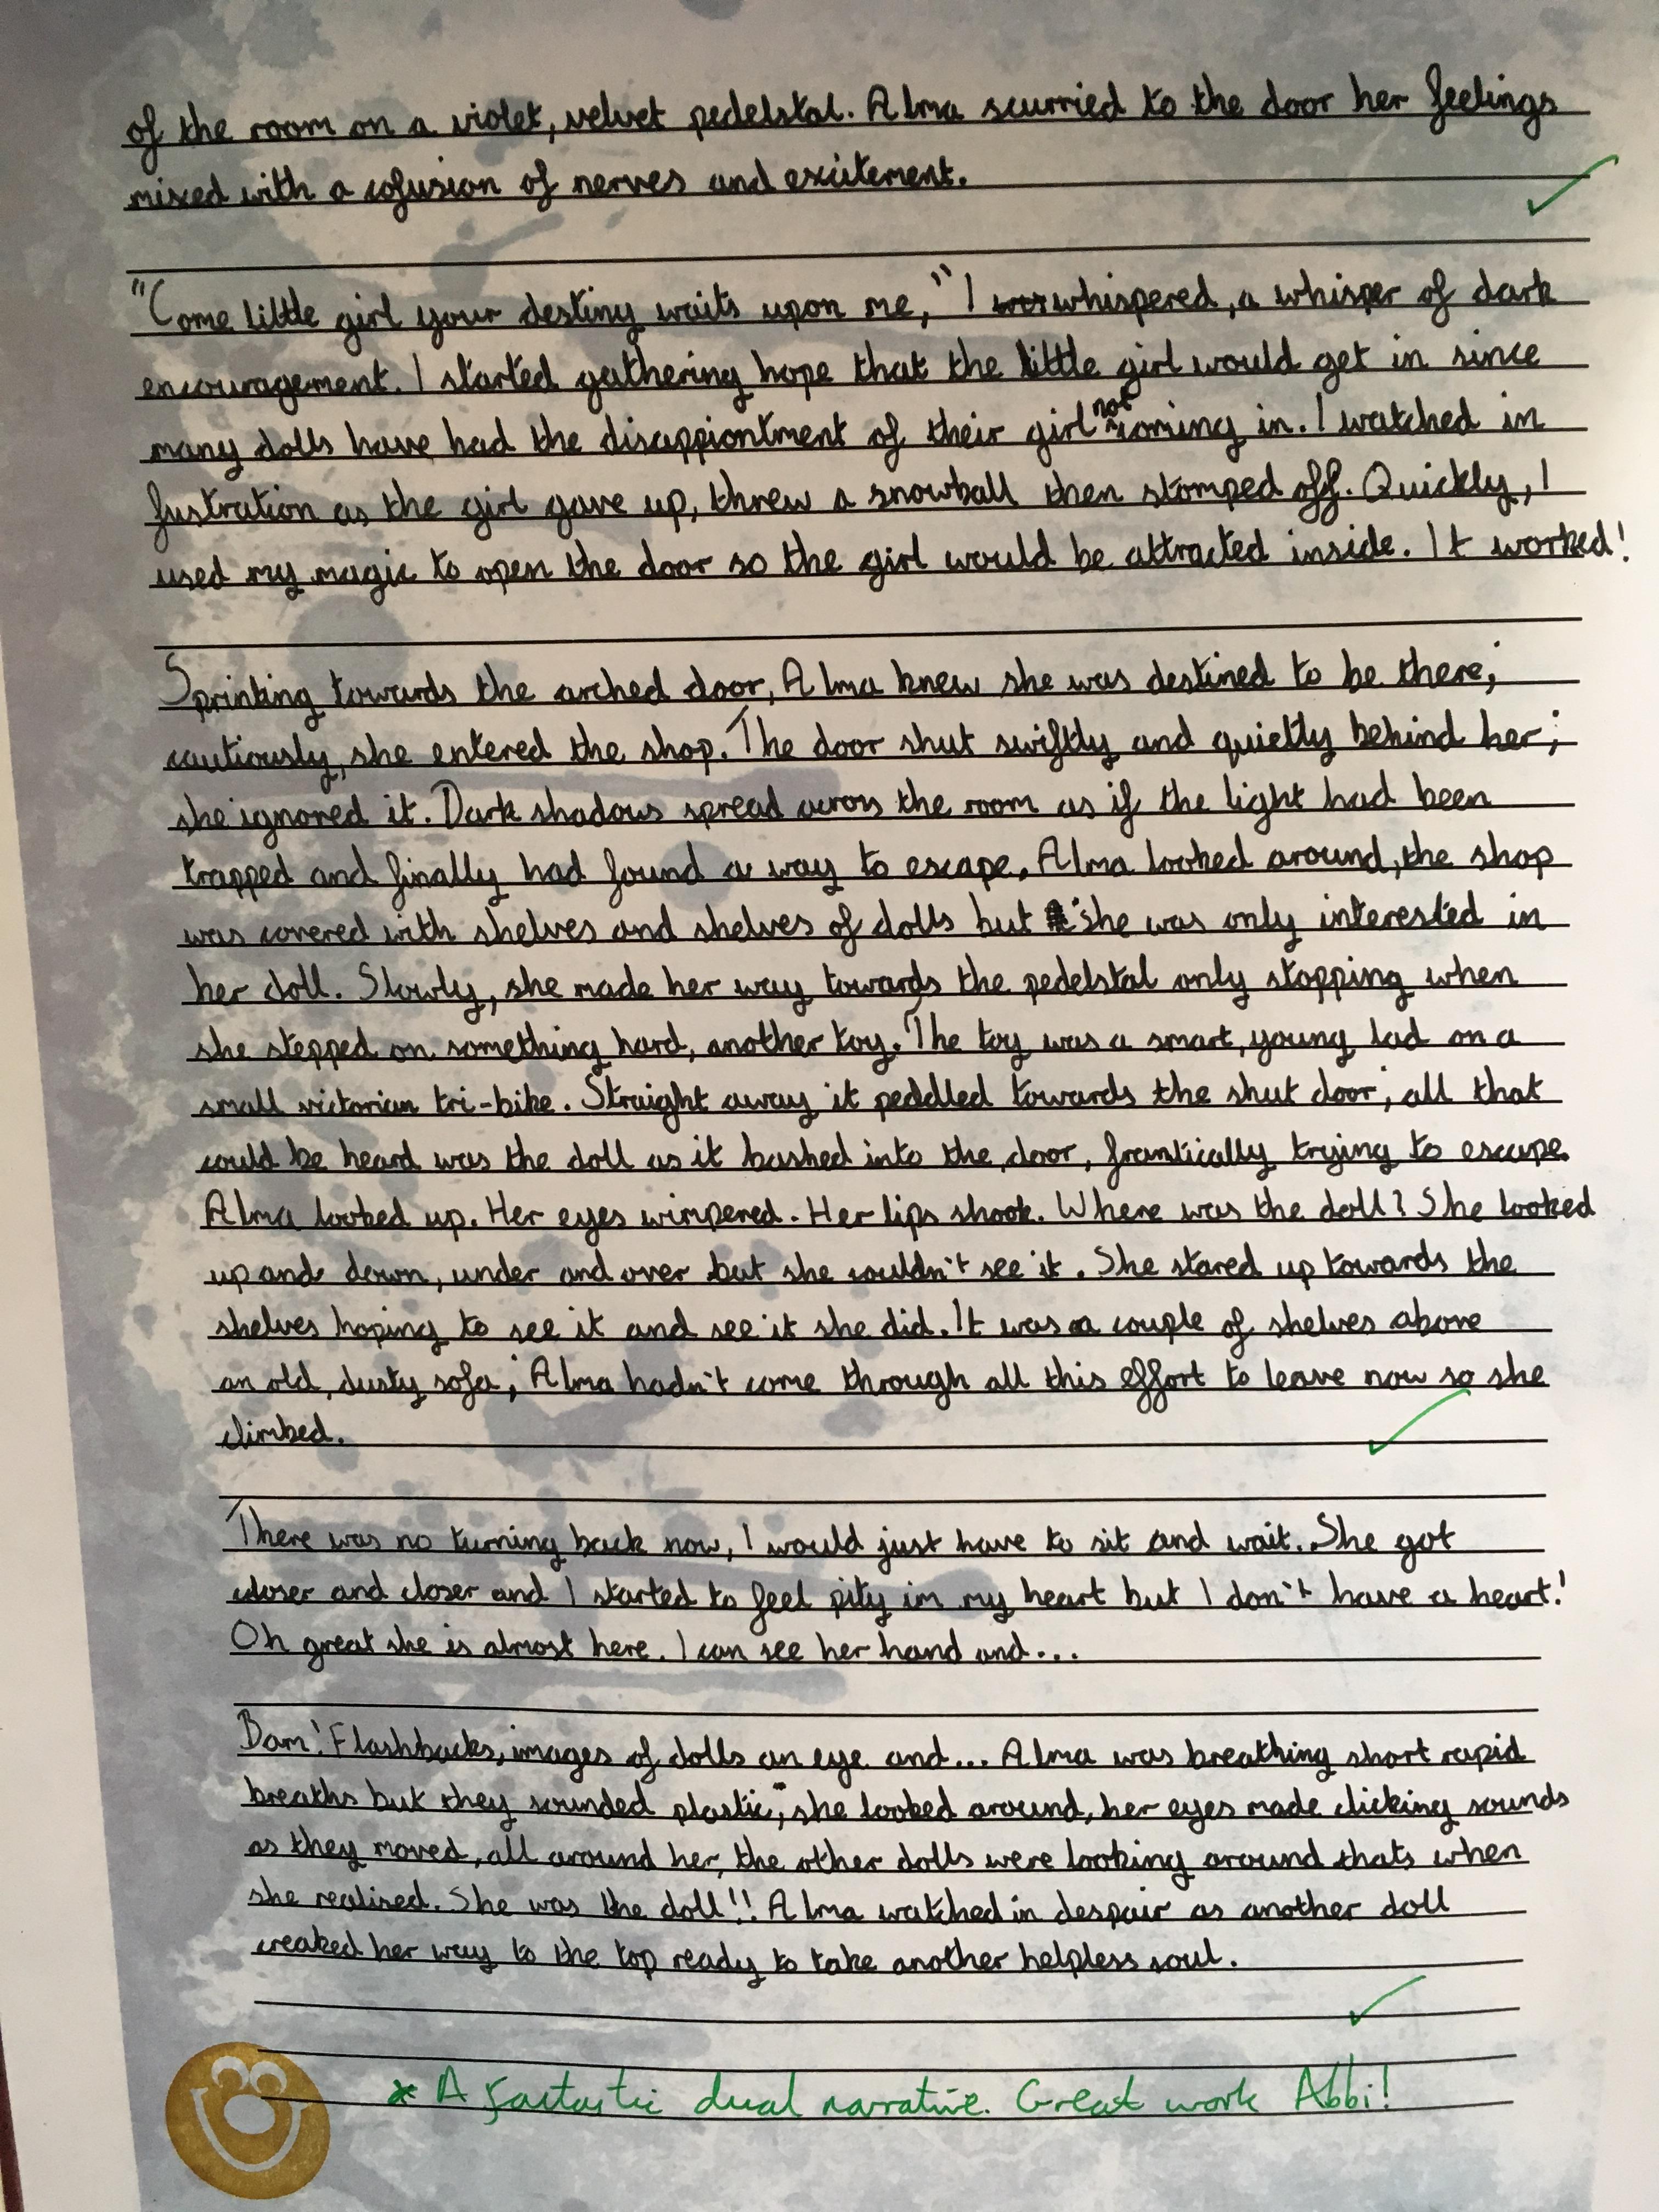 of the room on a violet, velvet pedelstal. Alma scurried to the door her feelings
mixed with a cofusion of nerves and excitement.
"Come little girl your destiny waits upon me," I whispered, a whisper of dark
encouragement. I started gathering hope that the little girl would get in since
many dolls have had the disappiontment of their girl not coming in. I watched in
fustration as the girl gave up, threw a snowball then stomped off. Quickly, I
used my magic to open the door so the girl would be attracted inside. It worked!
Sprinting towards the arched door, Alma knew she was destined to be there;
cautiously, she entered the shop. The door shut swiftly and quietly behind her;
she ignored it. Dark shadows spread across the room as if the light had been
trapped and finally had found a way to escape. Alma looked around, the shop
was covered with shelves and shelves of dolls but she was only interested in
her doll. Slowly, she made her way towards the pedelstal only stopping when
she stepped on something hard, another toy. The toy was a smart, young lad on a
small victorian tri-bike. Straight away it peddled towards the shut door; all that
could be heard was the doll as it bashed into the door, frantically trying to escape.
Alma looked up. Her eyes wimpered. Her lips shook. Where was the doll? She looked
up and down, under and over but she couldn't see it. She stared up towards the
shelves hoping to see it and see it she did. It was a couple of shelves above
an old, dusty sofa; Alma hadn't come through all this effort to leave now so she
climbed.
There was no turning back now, I would just have to sit and wait. She got
closer and closer and I started to feel pity in my heart but I don't have a heart!
Oh great she is almost here. I can see her hand and...
Bam! Flashbacks, images of dolls an eye and... Alma was breathing short rapid
breaths but they sounded plastic; she looked around, her eyes made clicking sounds
as they moved, all around her, the other dolls were looking around thats when
she realised. She was the doll!! Alma watched in despair as another doll
creaked her way to the top ready to take another helpless soul.
* A fantastic dual narrative. Great work Abbi!